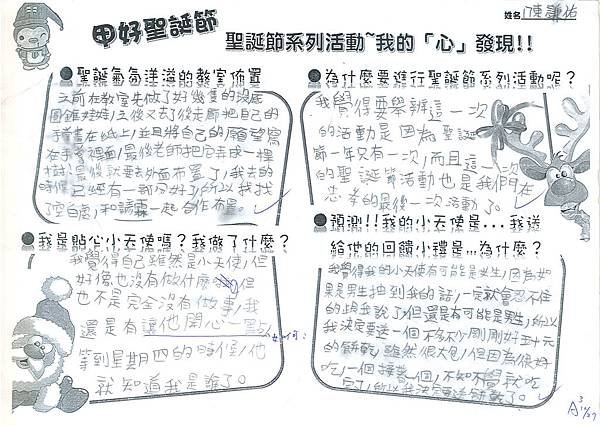 甲好聖誕節
姓名 陳謙祐
聖誕節系列活動~我的「心」發現!!
●聖誕氣氛洋溢的教室佈置
之前在教室先做了好幾隻的沒底
圓錐娃娃,之後又去了後走廊把自己的
手畫在紙上,並且將自己的願望寫
在手掌裡面,最後老師把它弄成一棵
樹,最後就要去外面布置了,我去的
時候已經有一部分好了,所以我找
了空白處,和 一起合作布置。
●我是貼心小天使嗎?我做了什麼?
我覺得自己雖然是小天使,但
好像也沒有做什麼,但
也不是完全沒有做事,我
還是有讓他開心一
如何:
等到星期四的時候,他
就知道我是誰了。
●為什麼要進行聖誕節系列活動呢?
我覺得要舉辦這一次
的活動是因為聖誕
節一年只有一次,而且這一次
的聖誕節活動也是我們在
忠孝的最後一次活動了。
●預測!!我的小天使是...我送
給他的回饋小禮是...為什麼?
我覺得我的小天使有可能是女生,因為如
果是男生抽到我的話,一定就會忍不住
的跟我說了,但還是有可能是男生,所以
我決定要送一個不多不少剛剛好五十元
的餅乾,雖然很大包,但因為很好
吃,一個接著一個,不知不覺就吃
完了,所以我決定要送餅乾了。
A